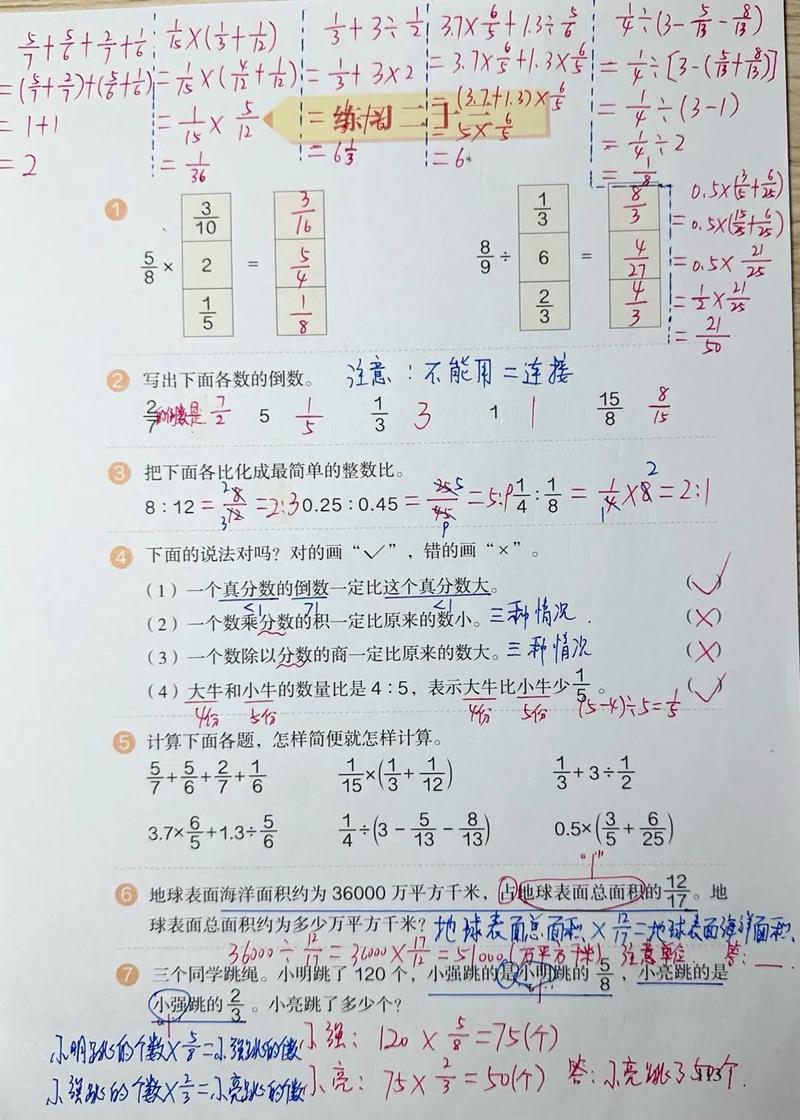 5/7+5/6+2/7+1/6
=(5/7+2/7)+(5/6+1/6)
=1+1
=2
1/15×(1/3+1/12)
=1/15×(4/12+1/12)
=1/15×5/12
=1/36
1/3+3÷1/2
=1/3+3×2
=6 1/3
3.7×6/5+1.3÷5/6
=3.7×6/5+1.3×6/5
=(3.7+1.3)×6/5
=5×6/5
=6
1/4÷(3-5/13-8/13)
=1/4÷[3-(5/13+8/13)]
=1/4÷(3-1)
=1/4÷2
=1/8
0.5×(3/5+6/25)
=0.5×(15/25+6/25)
=0.5×21/25
=1/2×21/25
=21/50
练习二十三
1
5/8 × 3/10 2 1/5 = 3/16 5/4 1/8
8/9 ÷ 1/3 6 2/3 = 8/3 4/27 4/3
2 写出下面各数的倒数。 注意:不能用=连接
2/7的倒数是7/2 5 1/5 1/3 3 1 1 15/8 8/15
3 把下面各比化成最简单的整数比。
8:12=8/12=2:3 0.25:0.45=25/45=5:9 1/4:1/8=1/4×8=2:1
4 下面的说法对吗?对的画“✓”,错的画“×”。
(1)一个真分数的倒数一定比这个真分数大。 (✓)
<1 >1 <1
(2)一个数乘分数的积一定比原来的数小。三种情况. (×)
(3)一个数除以分数的商一定比原来的数大。三种情况 (×)
(4)大牛和小牛的数量比是4:5,表示大牛比小牛少1/5。 (✓)
4份 5份 4份 5份 (5-4)÷5=1/5
5 计算下面各题,怎样简便就怎样计算。
5/7+5/6+2/7+1/6 1/15×(1/3+1/12) 1/3+3÷1/2
3.7×6/5+1.3÷5/6 1/4÷(3-5/13-8/13) 0.5×(3/5+6/25)
“1”
6 地球表面海洋面积约为36000万平方千米,占地球表面总面积的12/17。地
球表面总面积约为多少万平方千米?地球表面总面积×12/17=地球表面海洋面积.
36000÷12/17=36000×17/12=51000(万平方千米) 注意单位. 答:__.
7 三个同学跳绳。小明跳了120个,小强跳的是小明跳的5/8,小亮跳的是
小强跳的2/3。小亮跳了多少个?
小明跳的个数×5/8=小强跳的个数 小强:120×5/8=75(个)
小强跳的个数×2/3=小亮跳的个数 小亮:75×2/3=50(个) 答:小亮跳了50个.
113